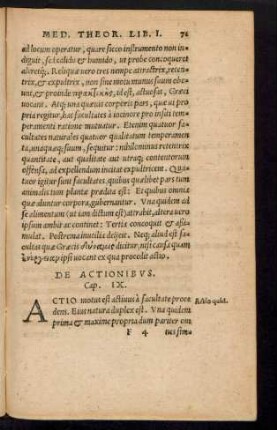 MED. THEOR. LIB. I. 72
ad locum operatur, quare sicco instrumento non in-
diguit, sed calido & humido, ut probe concoqueret
alteretq;. Reliquæ vero tres nempe attractrix, reten-
trix, & expultrix, non sine mechanismus suum obe-
unt, & proinde πρακτικαὶ, id est, actuosæ, Græci
vocant. Atq; una quævis corporis pars, quæ ui pro-
pria regitur, has facultates à uicino pro insiti tempe-
ramenti ratione mutuatur. Etenim quatuor fa-
cultates naturales quatuor qualitatum temperamen-
tum, unaquæq; suum, sequitur: nihilominus retentrix
quantitate, aut qualitate aut utraq; contentorum
offensa, ad expellendum incitat expultricem. Qua-
tuor igitur sunt facultates, quibus quælibet pars tum
animalis tum plantæ prædita est: Et quibus omnia
quæ aluntur corpora, gubernantur. Vna quidem ad
se alimentum (ut iam dictum est) attrahit, altera uero
ipsum ambit ac continet: Tertia concoquit & assi-
mulat. Postrema inutilia deijcit. Neq; aliud est fa-
cultas quæ Græcis δύναμις dicitur, nisi causa quam
ipsi uocant ex qua procedit actio.
DE ACTIONIBVS.
Cap. IX.
ACTIO motus est actiuus à facultate proce
dens. Eius natura duplex est. Vna quidem
prima & maxime propria dum pariter om
F 4 nes sima
Actio quid.